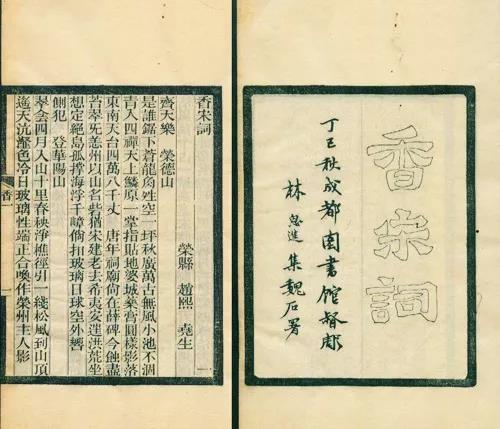 香宋詞
丁巳秋成都圖書館督彫
林思進集魏石署
香宋詞
榮縣 趙熙 堯生
齊天樂 榮德山
是誰鋸下蒼龍角姓空一坪秋廣萬古無風小池不涸
百人四禪天上鱗原一掌指貼地婆城藥膏圓樣影落
東南天台四萬八千丈 唐年祠廟尚在薛碑今蝕盡
苔翠旡恙州以山名砦猶宋建老去希夷安達洪荒坐
想定絕島孤撐海浮千嶂倘扣玻璃日球空外響
側犯 登華陽山
翠含四月入山十里春秧淨樵徑引一綫松風到山頂
迤天沆瀣色冷日玻璃性端正合喚作榮州主人影
香一